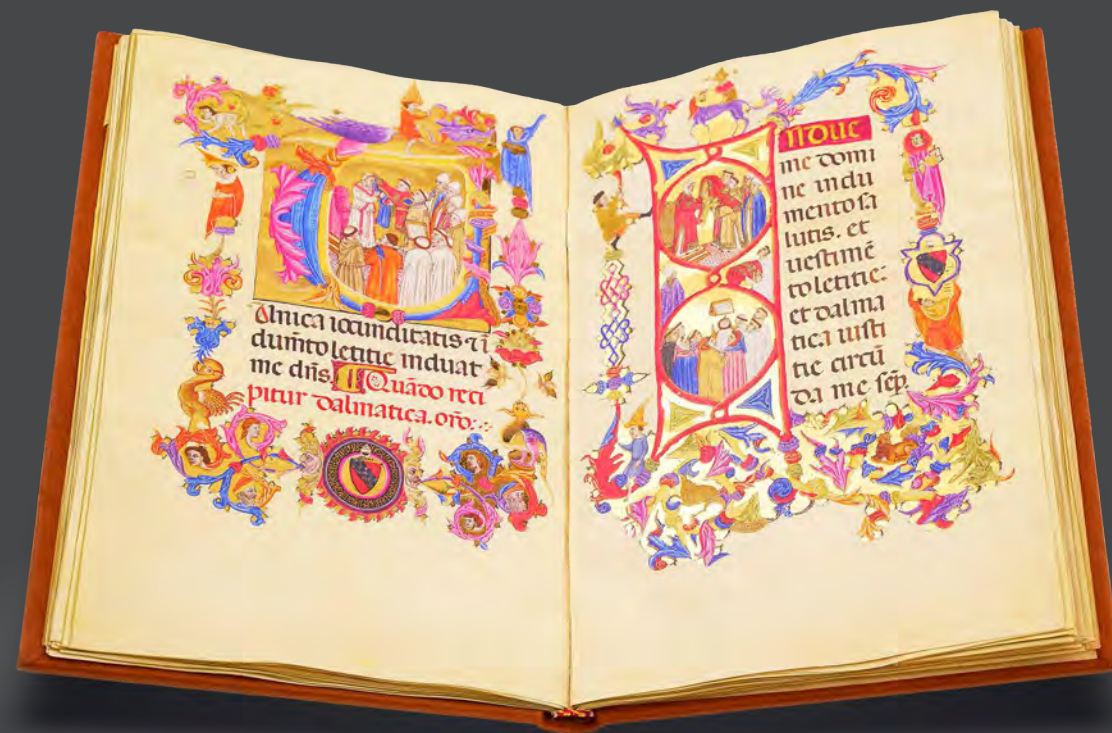 Tunica iocunditatis ⁊ ī
dumēto letitie induat
me dn̄s. Quādo reci
pitur dalmatica. orō:
INDUE
me domi
ne indu
mento sa
lutis. et
uestimē
to letitie:
et dalma
tica iusti
tie circū
da me sēp.